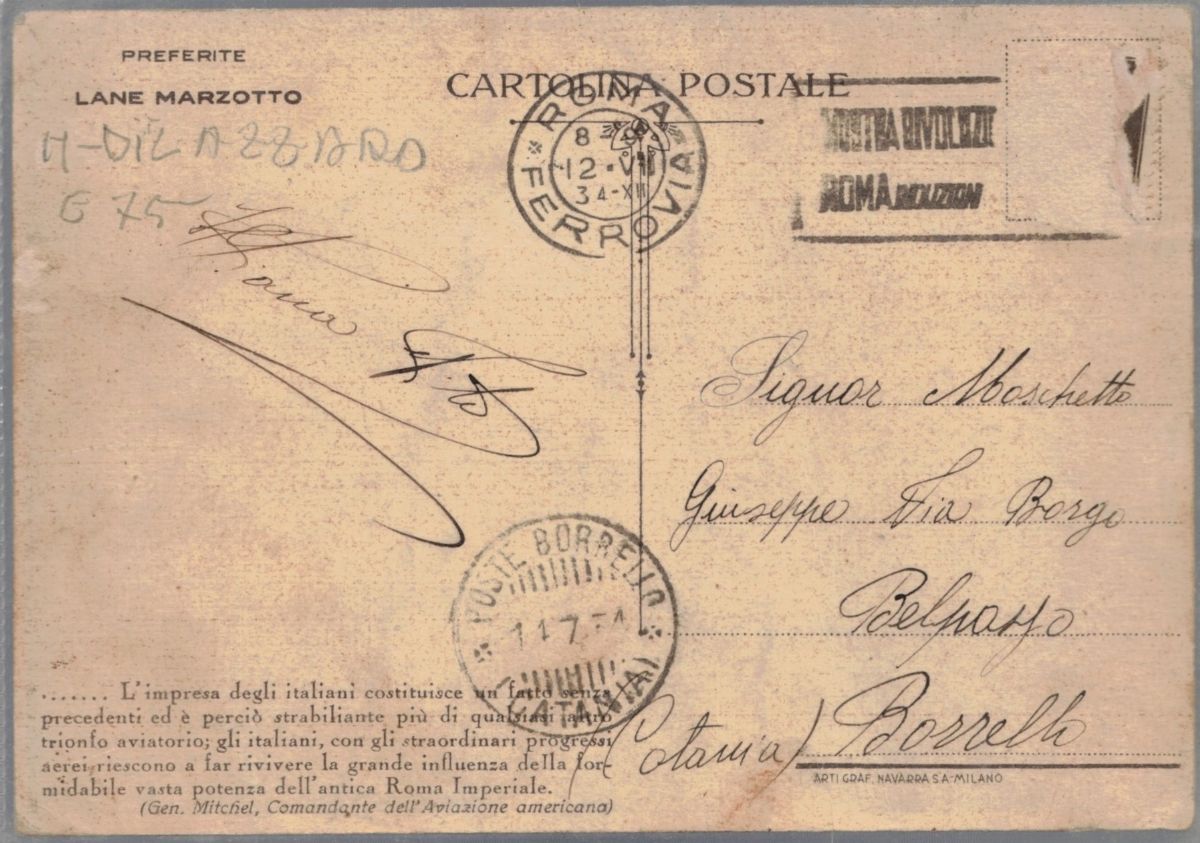 PREFERITE
LANE MARZOTTO
CARTOLINA POSTALE
ROMA FERROVIA
12·VII
34-XII
ROMA RIDUZIONI
M-DILAZZARO
E 75
Vito
Signor Moschetto
Giuseppe Via Borgo
Belpasso
Borrello
(Catania)
* POSTE BORRELLO *
(CATANIA)
....... L'impresa degli italiani costituisce un fatto senza
precedenti ed è perciò strabiliante più di qualsiasi altro
trionfo aviatorio; gli italiani, con gli straordinari progressi
aerei riescono a far rivivere la grande influenza della for-
midabile vasta potenza dell'antica Roma Imperiale.
(Gen. Mitchel, Comandante dell'Aviazione americana)
ARTI GRAF. NAVARRA S.A-MILANO